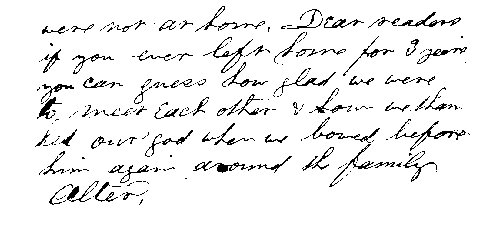 were not at home. Dear readers
if you ever left home for 3 years
you can guess how glad we were
to, meet Each other & how we than
ked our god when we bowed before
him again around th family
Alter,